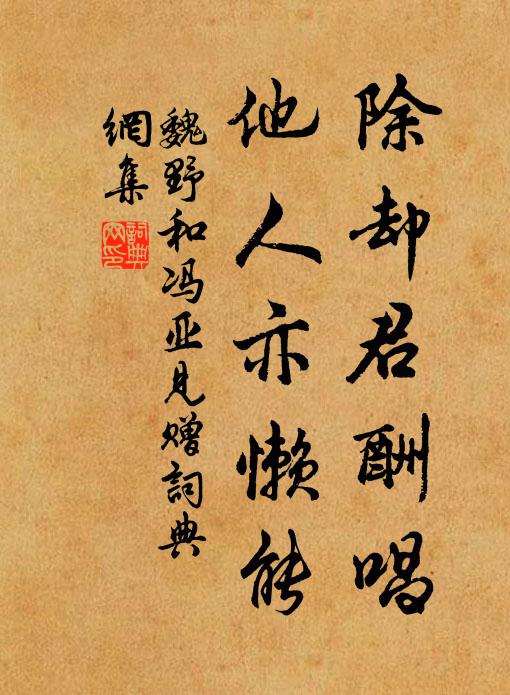 除却君酬唱
他人亦懒能
魏野和冯亚见赠詞典
網集
詞典網印